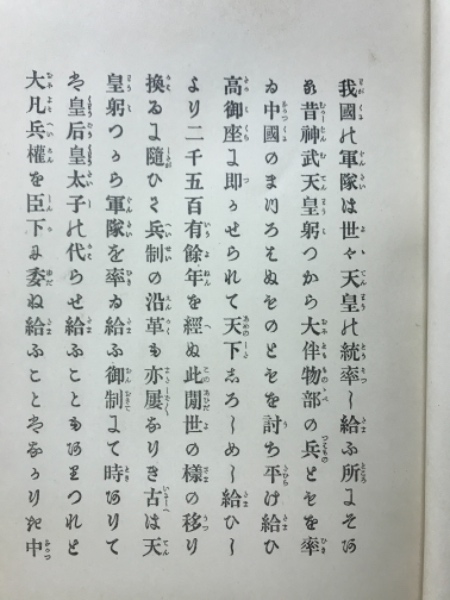 我國の軍隊は世々天皇の統率し給ふ所にそあ
る昔神武天皇躬つから大伴物部の兵ともを率
ゐ中國のまつろはぬものともを討ち平け給ひ
高御座に即かせられて天下しろしめし給ひし
より二千五百有餘年を經ぬ此間世の様の移り
換るに隨ひて兵制の沿革も亦屢なりき古は天
皇躬つから軍隊を率ゐ給ふ御制にて時ありて
は皇后皇太子の代らせ給ふこともありつれと
大凡兵權を臣下に委ね給ふことはなかりき中